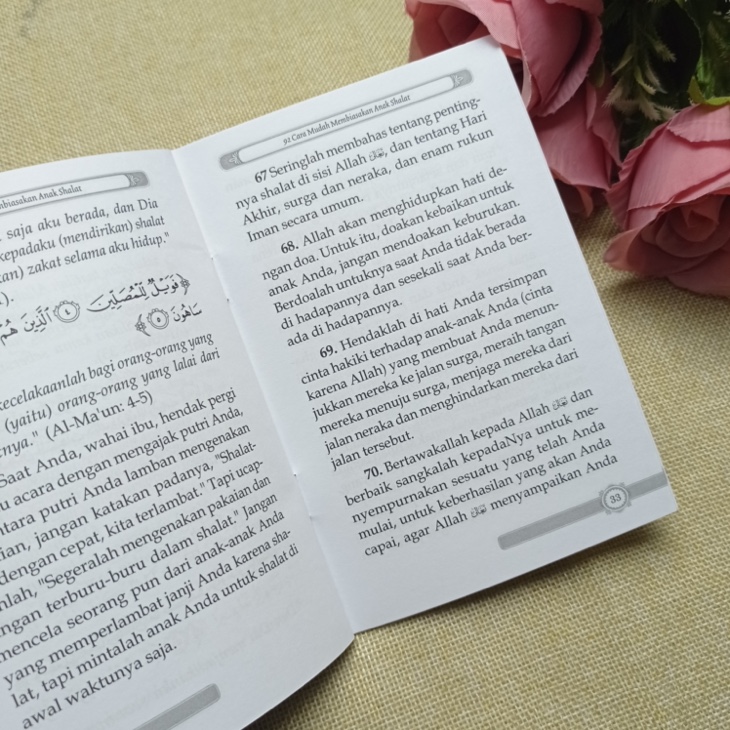 mbiasakan Anak Shalat
saja aku berada, dan Dia
kepadaku (mendirikan) shalat
kan) zakat selama aku hidup."
).
﴿فَوَيْلٌ لِّلْمُصَلِّينَ ﴿٤﴾ الَّذِينَ هُمْ
سَاهُونَ ﴿٥﴾
kecelakaanlah bagi orang-orang yang
(yaitu) orang-orang yang lalai dari
tnya." (Al-Ma'un: 4-5)
Saat Anda, wahai ibu, hendak pergi
u acara dengan mengajak putri Anda,
ntara putri Anda lamban mengenakan
ian, jangan katakan padanya, "Shalat-
dengan cepat, kita terlambat." Tapi ucap-
nlah, "Segeralah mengenakan pakaian dan
ngan terburu-buru dalam shalat." Jangan
mencela seorang pun dari anak-anak Anda
yang memperlambat janji Anda karena sha-
lat, tapi mintalah anak Anda untuk shalat di
awal waktunya saja.
92 Cara Mudah Membiasakan Anak Shalat
67 Seringlah membahas tentang penting-
nya shalat di sisi Allah ﷻ, dan tentang Hari
Akhir, surga dan neraka, dan enam rukun
Iman secara umum.
68. Allah akan menghidupkan hati de-
ngan doa. Untuk itu, doakan kebaikan untuk
anak Anda, jangan mendoakan keburukan.
Berdoalah untuknya saat Anda tidak berada
di hadapannya dan sesekali saat Anda ber-
ada di hadapannya.
69. Hendaklah di hati Anda tersimpan
cinta hakiki terhadap anak-anak Anda (cinta
karena Allah) yang membuat Anda menun-
jukkan mereka ke jalan surga, meraih tangan
mereka menuju surga, menjaga mereka dari
jalan neraka dan menghindarkan mereka dari
jalan tersebut.
70. Bertawakallah kepada Allah ﷻ dan
berbaik sangkalah kepadaNya untuk me-
nyempurnakan sesuatu yang telah Anda
mulai, untuk keberhasilan yang akan Anda
capai, agar Allah ﷻ menyampaikan Anda
33